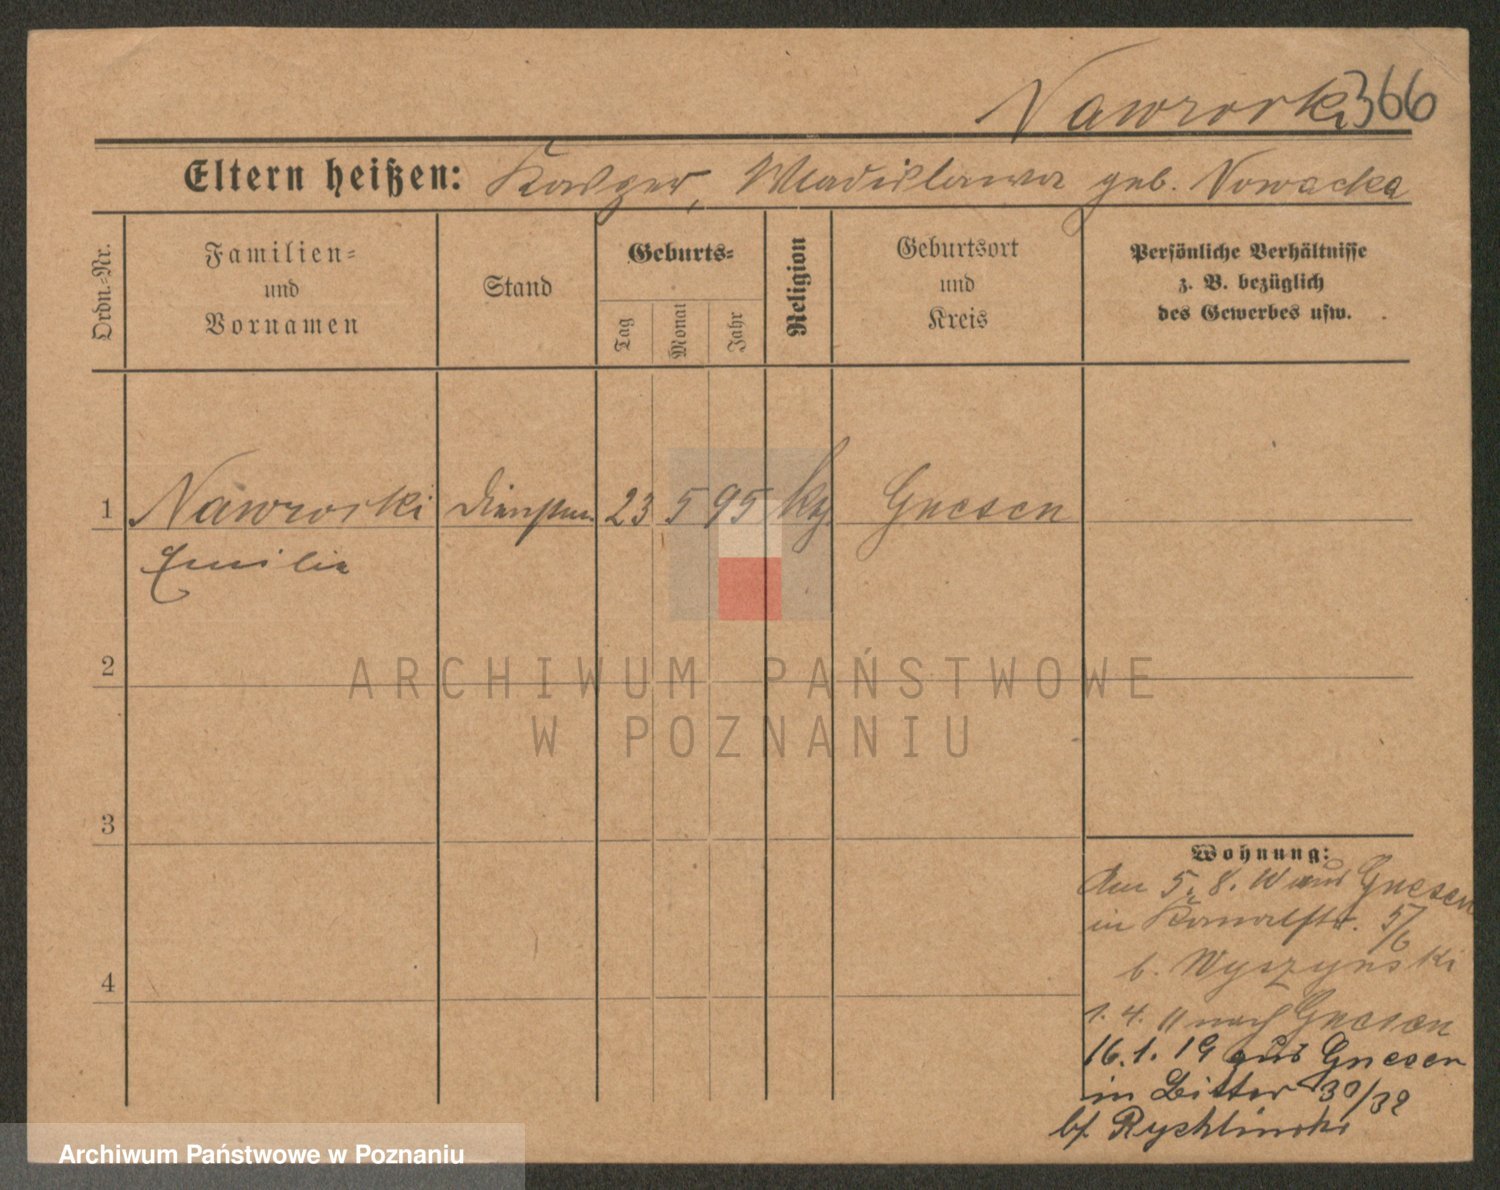 Nawrocki 366
Eltern heißen: Kasper, Wladislawa geb. Nowacka
Ordn.-Nr.
Familien-
und
Vornamen
Stand
Geburts-
Tag
Monat
Jahr
Religion
Geburtsort
und
Kreis
Persönliche Verhältnisse
z. B. bezüglich
des Gewerbes usw.
1 Nawrocki 23 5 95 kth Gnesen
Emilie
2
3
4
ARCHIWUM PAŃSTWOWE
W POZNANIU
Wohnung:
Am 5. 8. 10 aus Gnesen
in Kanalstr. 5/6
b. Wyszynski
1. 4. 11 nach Gnesen
16. 1. 19 aus Gnesen
in Bitter 30/32
bf. Rychlinski
Archiwum Państwowe w Poznaniu